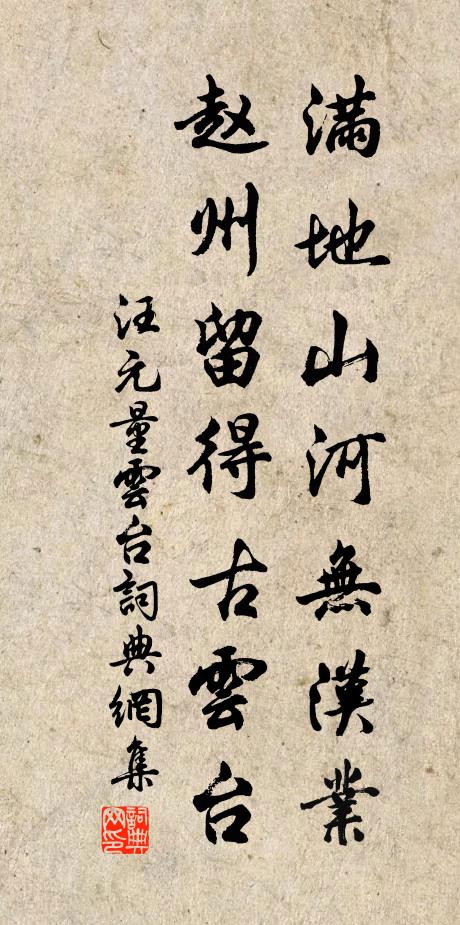 滿地山河無漢業
赵州留得古雲台
汪元量雲台詞典網集
詞典网印